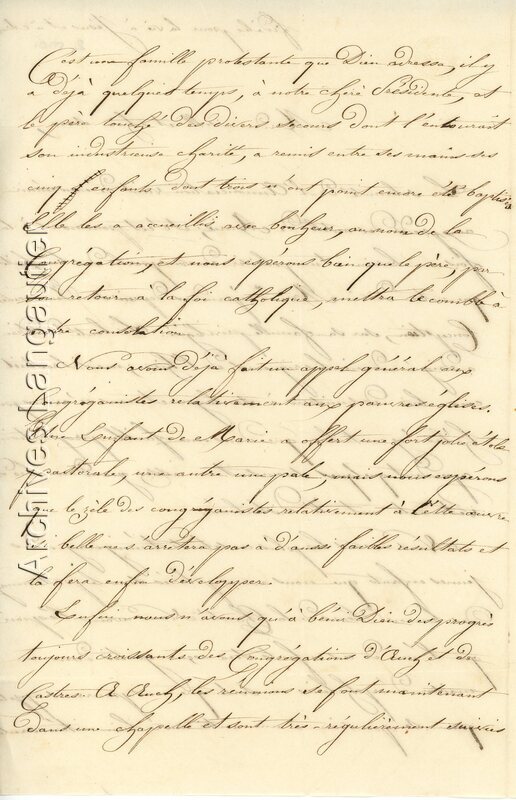 C'est une famille protestante que Dieu adressa, il y
a déjà quelques temps, à notre chère Présidente, et
le père touché des divers secours dont l'entourait
son industrieuse charité, a remis entre ses mains ses
cinq enfants dont trois n'ont point encore été baptisés
Elle les a accueillis avec bonheur, au nom de la
Congrégation, et nous espérons bien que le père, par
son retour à la foi catholique, mettra le comble à
notre consolation.
Nous avons déjà fait un appel général aux
Congréganistes relativement aux pauvres églises.
Une Enfant de Marie a offert une fort jolie étole
pastorale, une autre une pale, mais nous espérons
que le zèle des congréganistes relativement à cette œuvre
si belle ne s'arrêtera pas à d'aussi faibles résultats et
la fera enfin développer.
Enfin nous n'avons qu'à bénir Dieu des progrès
toujours croissants des Congrégations d'Auch et de
Castres. A Auch, les réunions se font maintenant
dans une chapelle et sont très-régulièrement suivies
Archives Langautier